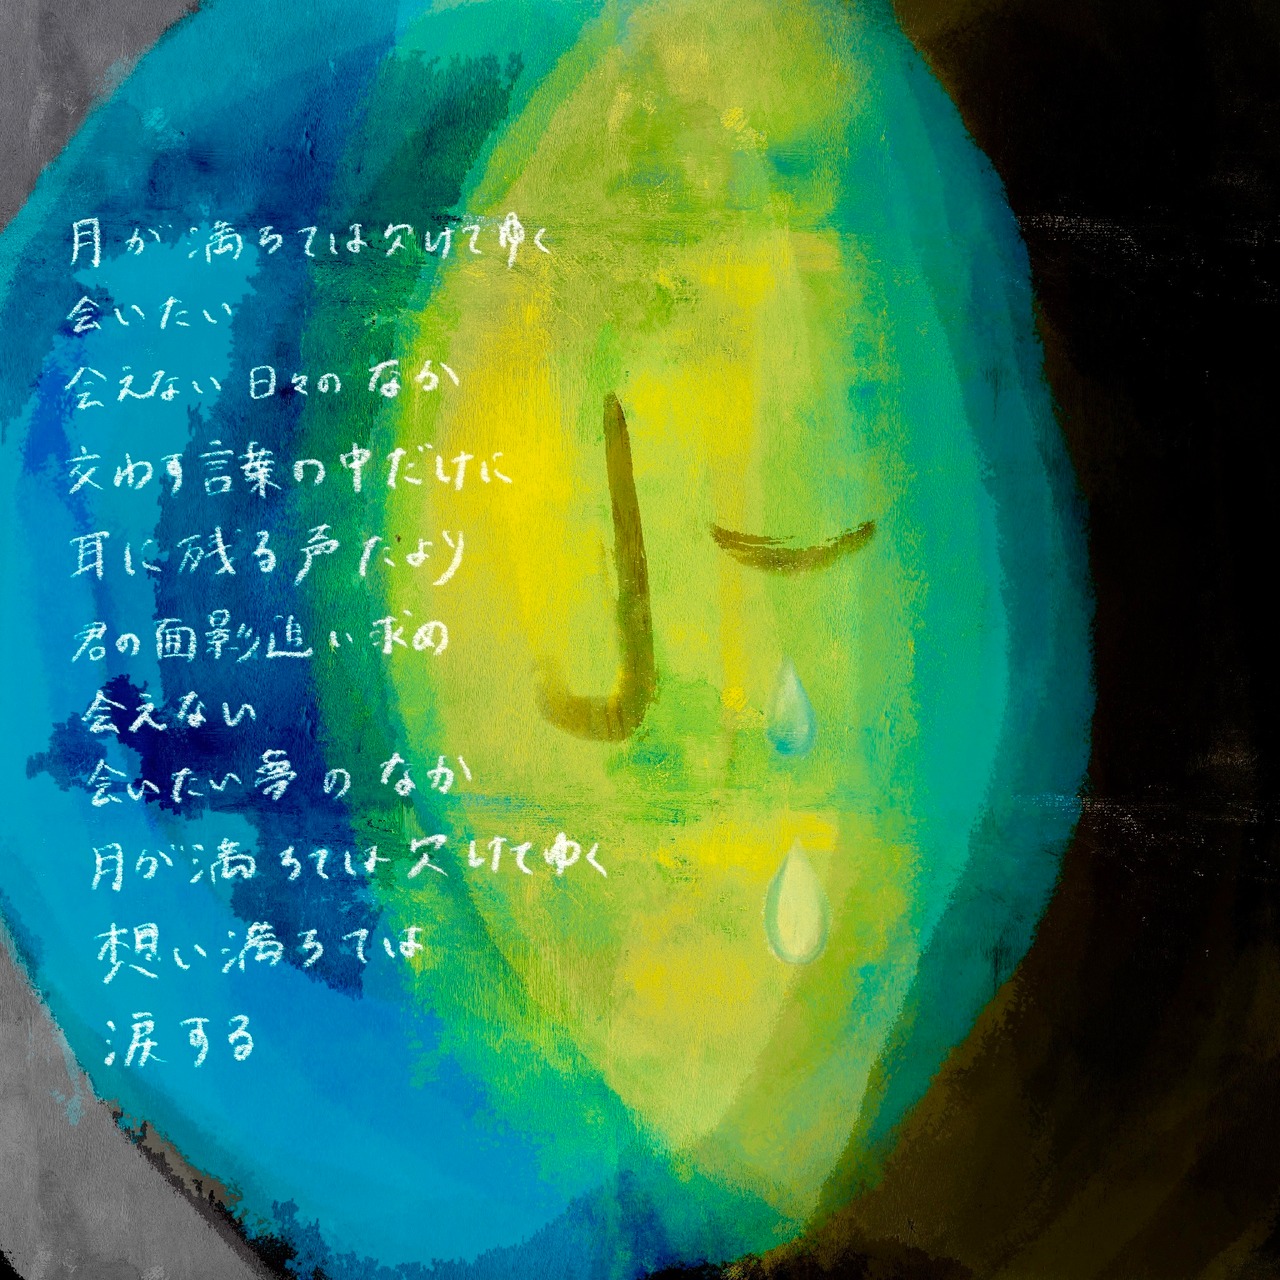 月が満ちては欠けてゆく
会いたい
会えない日々のなか
交わす言葉の中だけに
耳に残る声たより
君の面影追い求め
会えない
会いたい夢のなか
月が満ちては欠けてゆく
想い満ちては
涙する